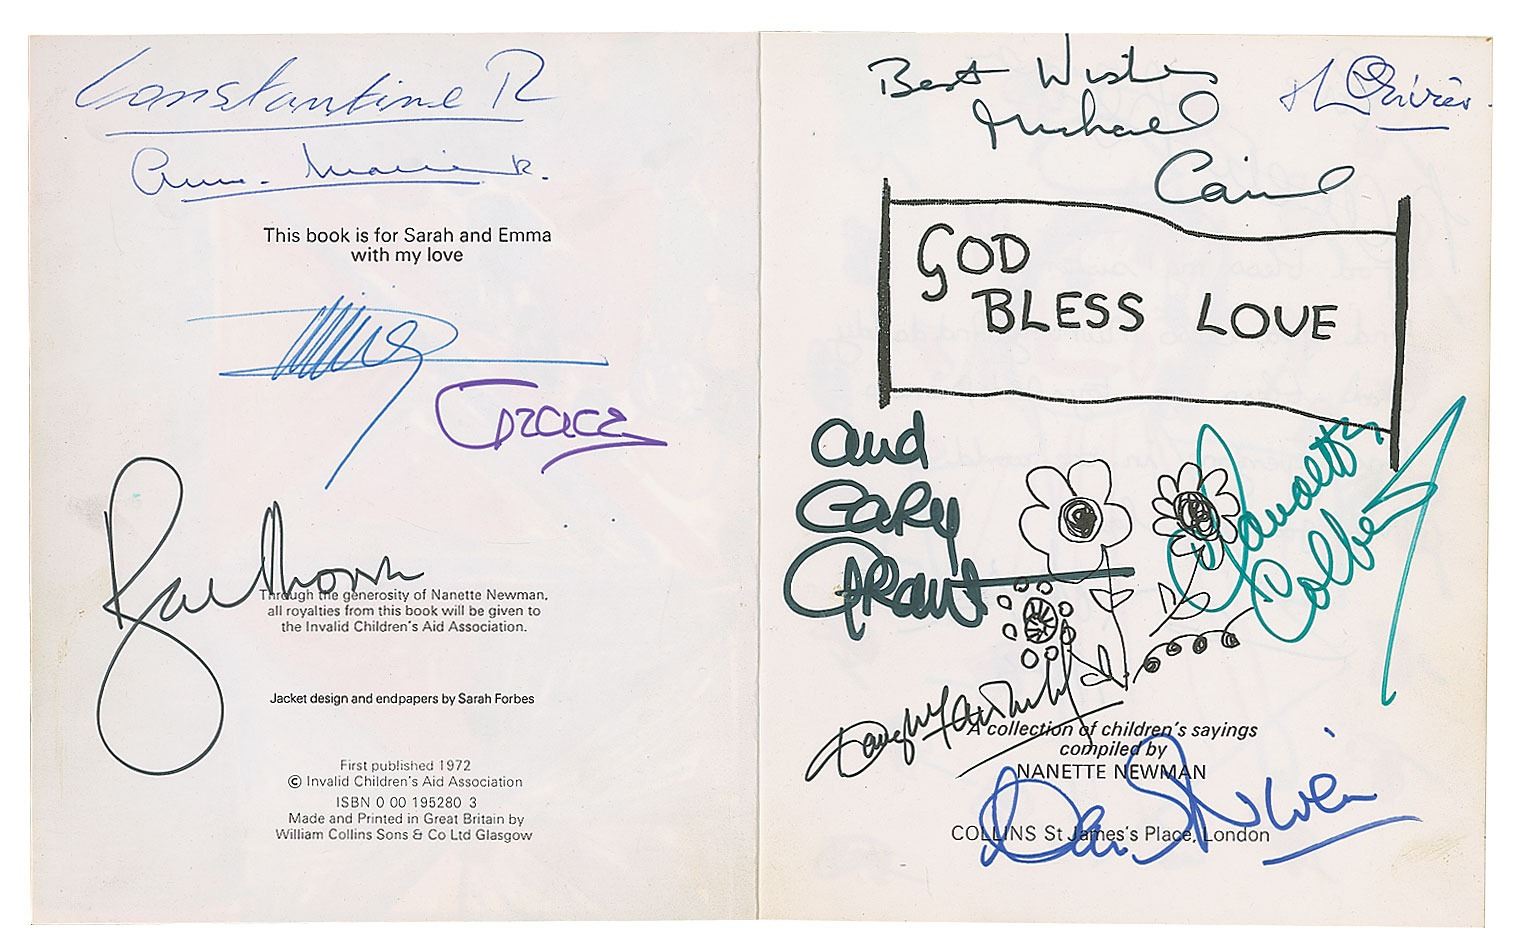 Constantine R
Anne-Marie R.
This book is for Sarah and Emma
with my love
Grace
Through the generosity of Nanette Newman,
all royalties from this book will be given to
the Invalid Children's Aid Association.
Jacket design and endpapers by Sarah Forbes
First published 1972
© Invalid Children's Aid Association
ISBN 0 00 195280 3
Made and Printed in Great Britain by
William Collins Sons & Co Ltd Glasgow
Best Wishes
Michael
Caine
GOD
BLESS LOVE
and
Cary
Grant
Claudette
Colbert
A collection of children's sayings
compiled by
NANETTE NEWMAN
David Niven
COLLINS St James's Place, London